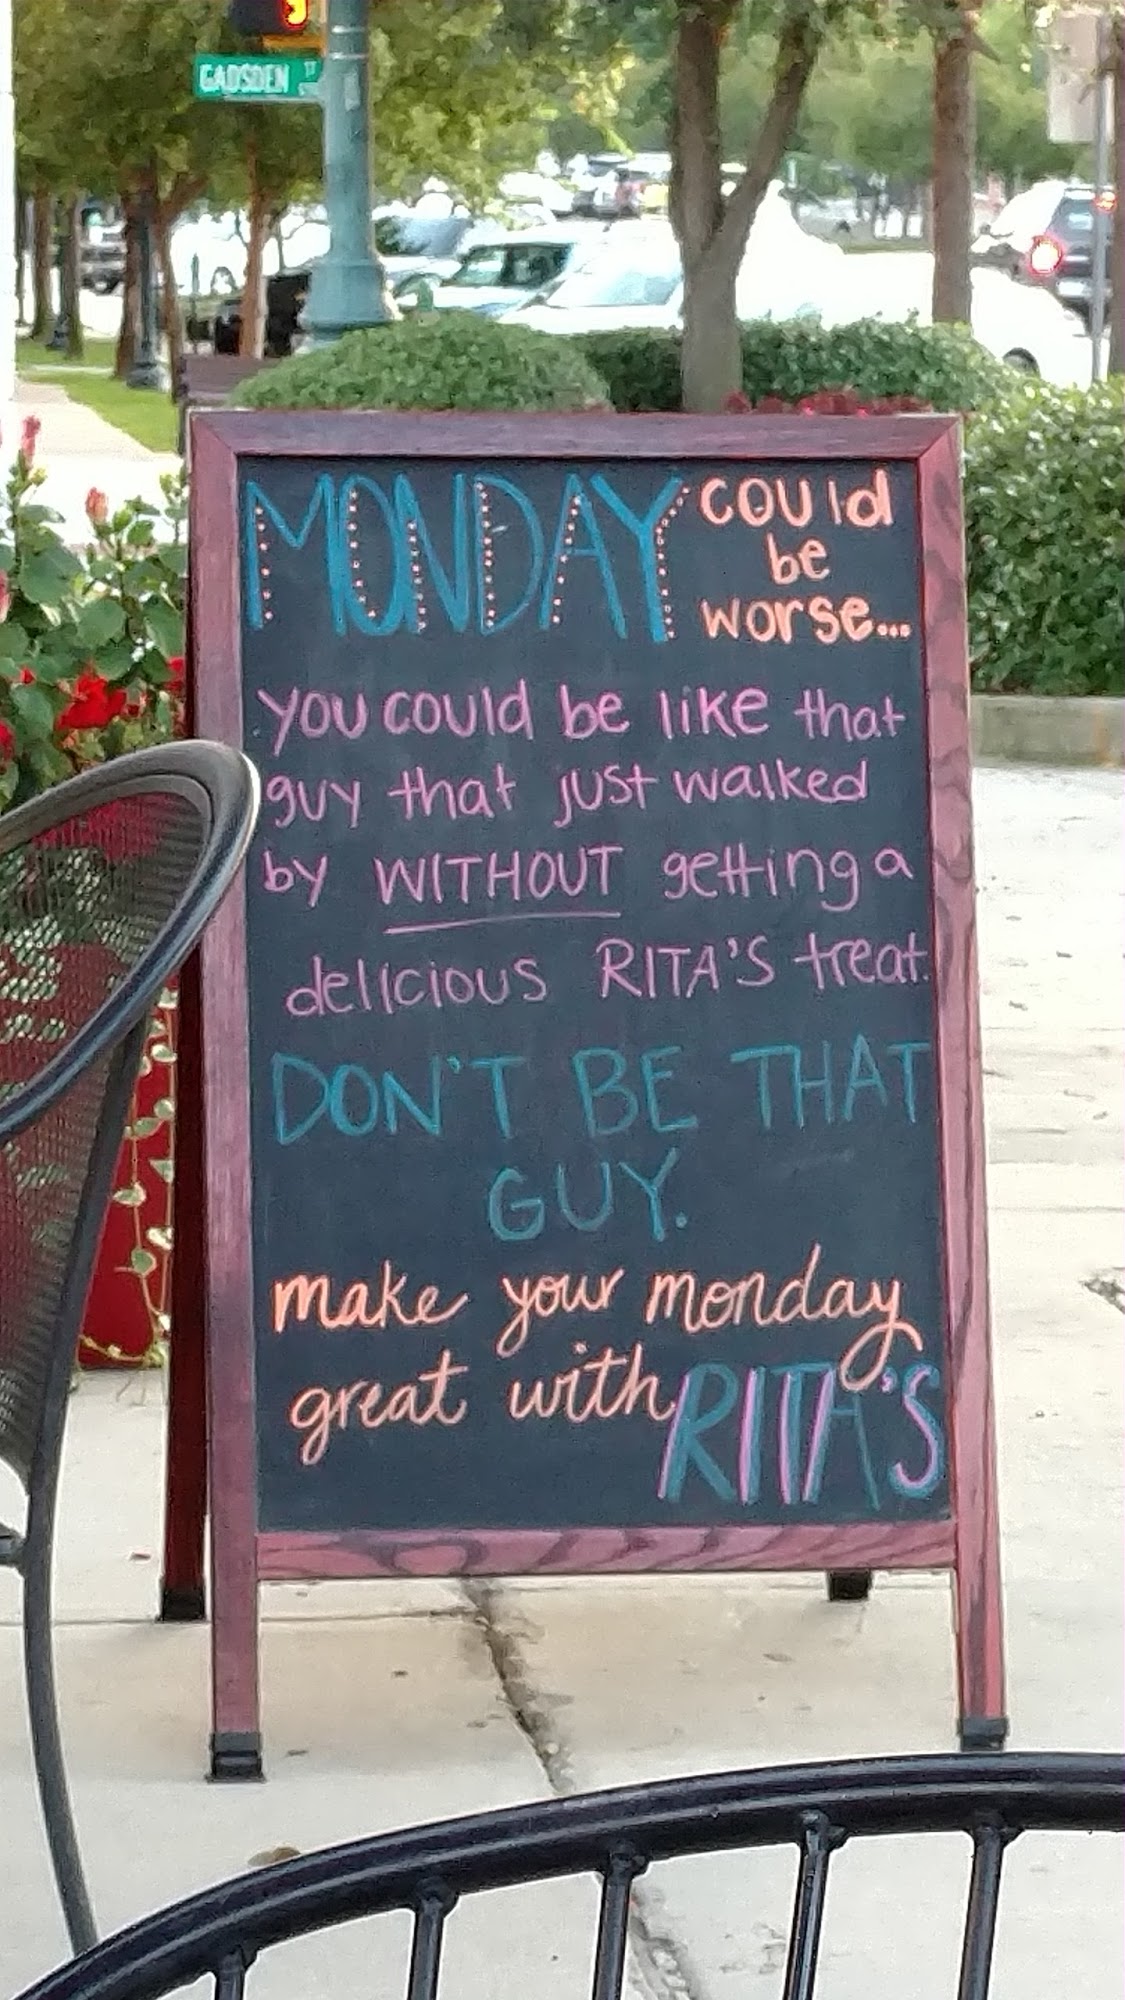 GADSDEN ST
MONDAY could
be
worse...
you could be like that
guy that just walked
by WITHOUT getting a
delicious RITA'S treat.
DON'T BE THAT
GUY.
make your monday
great with RITA'S